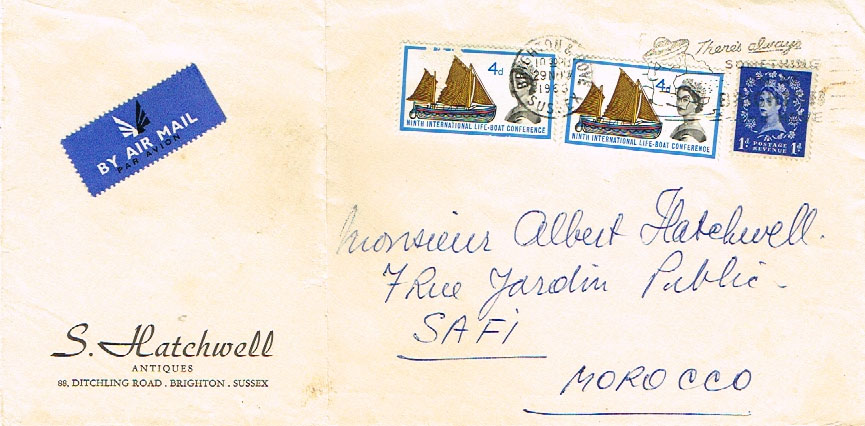 BY AIR MAIL
PAR AVION
4d
NINTH INTERNATIONAL LIFE-BOAT CONFERENCE
4d
NINTH INTERNATIONAL LIFE-BOAT CONFERENCE
1d POSTAGE REVENUE 1d
BRIGHTON &
29 NOV
SUSSEX
There's always
SOMETHING
Monsieur Albert Hatchwell.
7 Rue Jardin Public -
SAFI
MOROCCO
S. Hatchwell
ANTIQUES
88, DITCHLING ROAD . BRIGHTON . SUSSEX